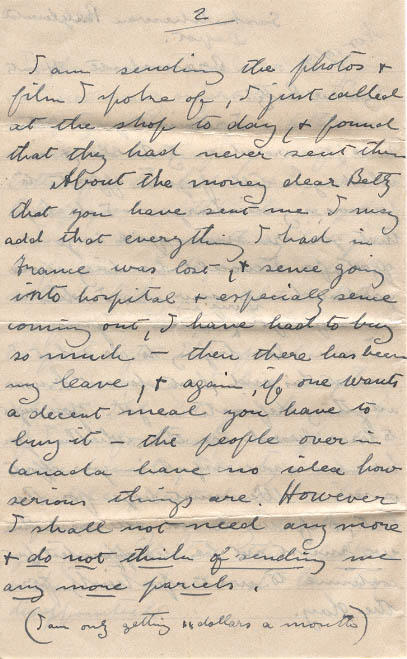 2
I am sending the photos &
film I spoke of, I just called
at the shop to day, & found
that they had never sent them
About the money dear Betty
that you have sent me I may
add that everything I had in
France was lost, & sence going
into hospital & especially sence
coming out, I have had to buy
so much – then there has been
my leave, & again, if one wants
a decent meal you have to
buy it – the people over in
Canada have no idea how
serious things are. However
I shall not need any more
& do not think of sending me
any more parcels.
(I am only getting dollars a month)